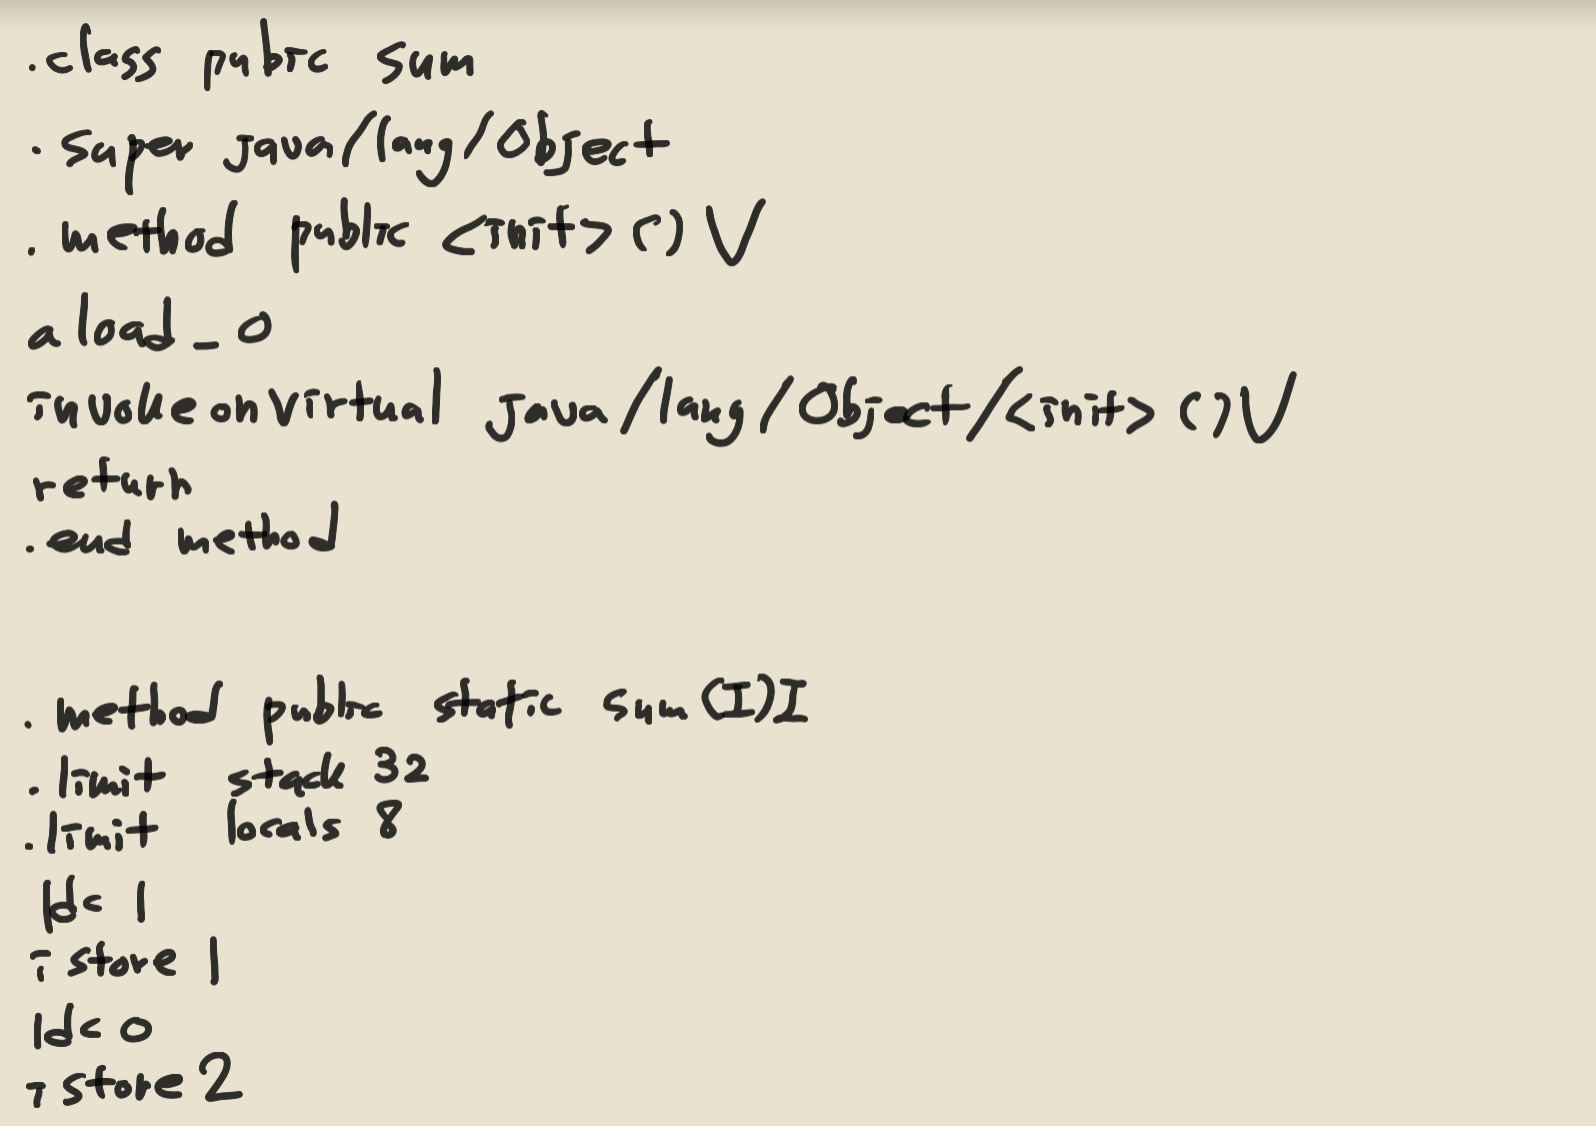 .class public sum
.super java/lang/Object
.method public <init> () V
aload_0
invokeonvirtual java/lang/Object/<init> ()V
return
.end method
.method public static sum(I)I
.limit stack 32
.limit locals 8
ldc 1
istore 1
ldc 0
istore 2